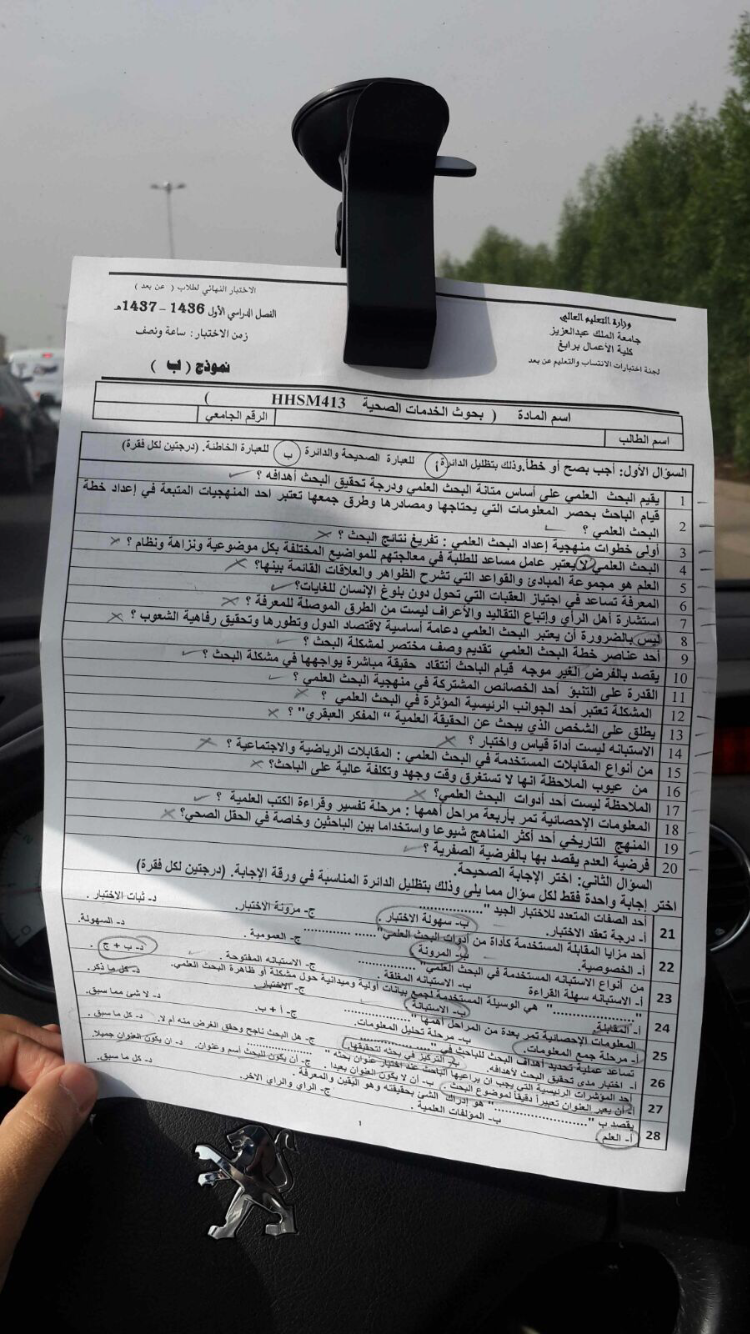 وزارة التعليم العالي
جامعة الملك عبدالعزيز
كلية الأعمال برابغ
لجنة اختبارات الانتساب والتعليم عن بعد
الاختبار النهائي لطلاب ( عن بعد )
الفصل الدراسي الأول 1436 – 1437هـ
زمن الاختبار : ساعة ونصف
نموذج ( ب )
اسم المادة ( بحوث الخدمات الصحية HHSM413 )
اسم الطالب الرقم الجامعي
السؤال الأول: أجب بصح أو خطأ. وذلك بتظليل الدائرة أ للعبارة الصحيحة والدائرة ب للعبارة الخاطئة. (درجتين لكل فقرة)
1 يقيم البحث العلمي على أساس متانة البحث العلمي ودرجة تحقيق البحث أهدافه ؟
2 قيام الباحث بحصر المعلومات التي يحتاجها ومصادرها وطرق جمعها تعتبر احد المنهجيات المتبعة في إعداد خطة
البحث العلمي ؟
3 أولى خطوات منهجية إعداد البحث العلمي : تفريغ نتائج البحث ؟
4 البحث العلمي لا يعتبر عامل مساعد للطلبة في معالجتهم للمواضيع المختلفة بكل موضوعية ونزاهة ونظام ؟
5 العلم هو مجموعة المبادئ والقواعد التي تشرح الظواهر والعلاقات القائمة بينها؟
6 المعرفة تساعد في اجتياز العقبات التي تحول دون بلوغ الإنسان للغايات؟
7 استشارة أهل الرأي وإتباع التقاليد والأعراف ليست من الطرق الموصلة للمعرفة ؟
8 ليس بالضرورة أن يعتبر البحث العلمي دعامة أساسية لاقتصاد الدول وتطورها وتحقيق رفاهية الشعوب ؟
9 أحد عناصر خطة البحث العلمي تقديم وصف مختصر لمشكلة البحث ؟
10 يقصد بالفرض الغير موجه قيام الباحث أنتقاد حقيقة مباشرة يواجهها في مشكلة البحث ؟
11 القدرة على التنبؤ أحد الخصائص المشتركة في منهجية البحث العلمي ؟
12 المشكلة تعتبر أحد الجوانب الرئيسية المؤثرة في البحث العلمي ؟
13 يطلق على الشخص الذي يبحث عن الحقيقة العلمية " المفكر العبقري" ؟
14 الاستبانه ليست أداة قياس واختبار ؟
15 من أنواع المقابلات المستخدمة في البحث العلمي : المقابلات الرياضية والاجتماعية ؟
16 من عيوب الملاحظة انها لا تستغرق وقت وجهد وتكلفة عالية على الباحث؟
17 الملاحظة ليست أحد أدوات البحث العلمي؟
18 المعلومات الإحصائية تمر بأربعة مراحل أهمها : مرحلة تفسير وقراءة الكتب العلمية ؟
19 المنهج التاريخي أحد أكثر المناهج شيوعا واستخداما بين الباحثين وخاصة في الحقل الصحي؟
20 فرضية العدم يقصد بها بالفرضية الصفرية ؟
السؤال الثاني: اختر الإجابة الصحيحة.
اختر إجابة واحدة فقط لكل سؤال مما يلي وذلك بتظليل الدائرة المناسبة في ورقة الإجابة. (درجتين لكل فقرة)
21 أحد الصفات المتعدد للاختبار الجيد "................
أ- درجة تعقد الاختبار. ب- سهولة الاختبار ج- مرونة الاختبار. د- ثبات الاختبار .
22 أحد مزايا المقابلة المستخدمة كأداة من أدوات البحث العلمي"................
أ- الخصوصية. ب- المرونة ج- العمومية . د- السهولة.
23 من أنواع الاستبانه المستخدمة في البحث العلمي" ................
أ- الاستبانه سهلة القراءة ب- الاستبانه المغلقة . ج- الاستبانه المفتوحة . د- ب + ج .
24 "................" هي الوسيلة المستخدمة لجمع بيانات أولية وميدانية حول مشكلة أو ظاهرة البحث العلمي.
أ- المقابلة ب- الاستبانة ج- الاختبار د- كل ما ذكر.
25 المعلومات الإحصائية تمر بعدة من المراحل أهمها "................
أ- مرحلة جمع المعلومات. ب- مرحلة تحليل المعلومات. ج- أ + ب. د- لا شئ مما سبق.
26 تساعد عملية تحديد أهداف البحث للباحث في "................
أ- اختبار مدى تحقيق البحث لأهدافه. ب- التركيز في بحثه لتحقيقها. ج- هل البحث ناجح وحقق الغرض منه أم لا. د- كل ما سبق .
27 أحد المؤشرات الرئيسية التي يجب ان يراعيها الباحث عند اختيار عنوان بحثه "
أ- أن يعبر العنوان تعبيراً دقيقاً لموضوع البحث . ب- أن لا يكون العنوان بعيدا . ج- أن يكون للبحث أسم وعنوان. د- ان يكون العنوان جميلا.
28 يقصد ب "................" هو إدراك الشئ بحقيقته وهو اليقين والمعرفة .
أ- العلم ب- المؤلفات العلمية . ج- الراي والراي الاخر. د- كل ما سبق.
1